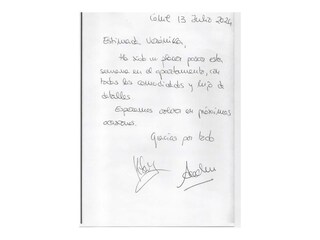 13 Julio 2024
Estimada
Ha sido un placer pasar esta
semana en el apartamento, con
todas las comodidades y lujo de
detalles.
Esperamos volver en próximas
ocasiones.
Gracias por todo